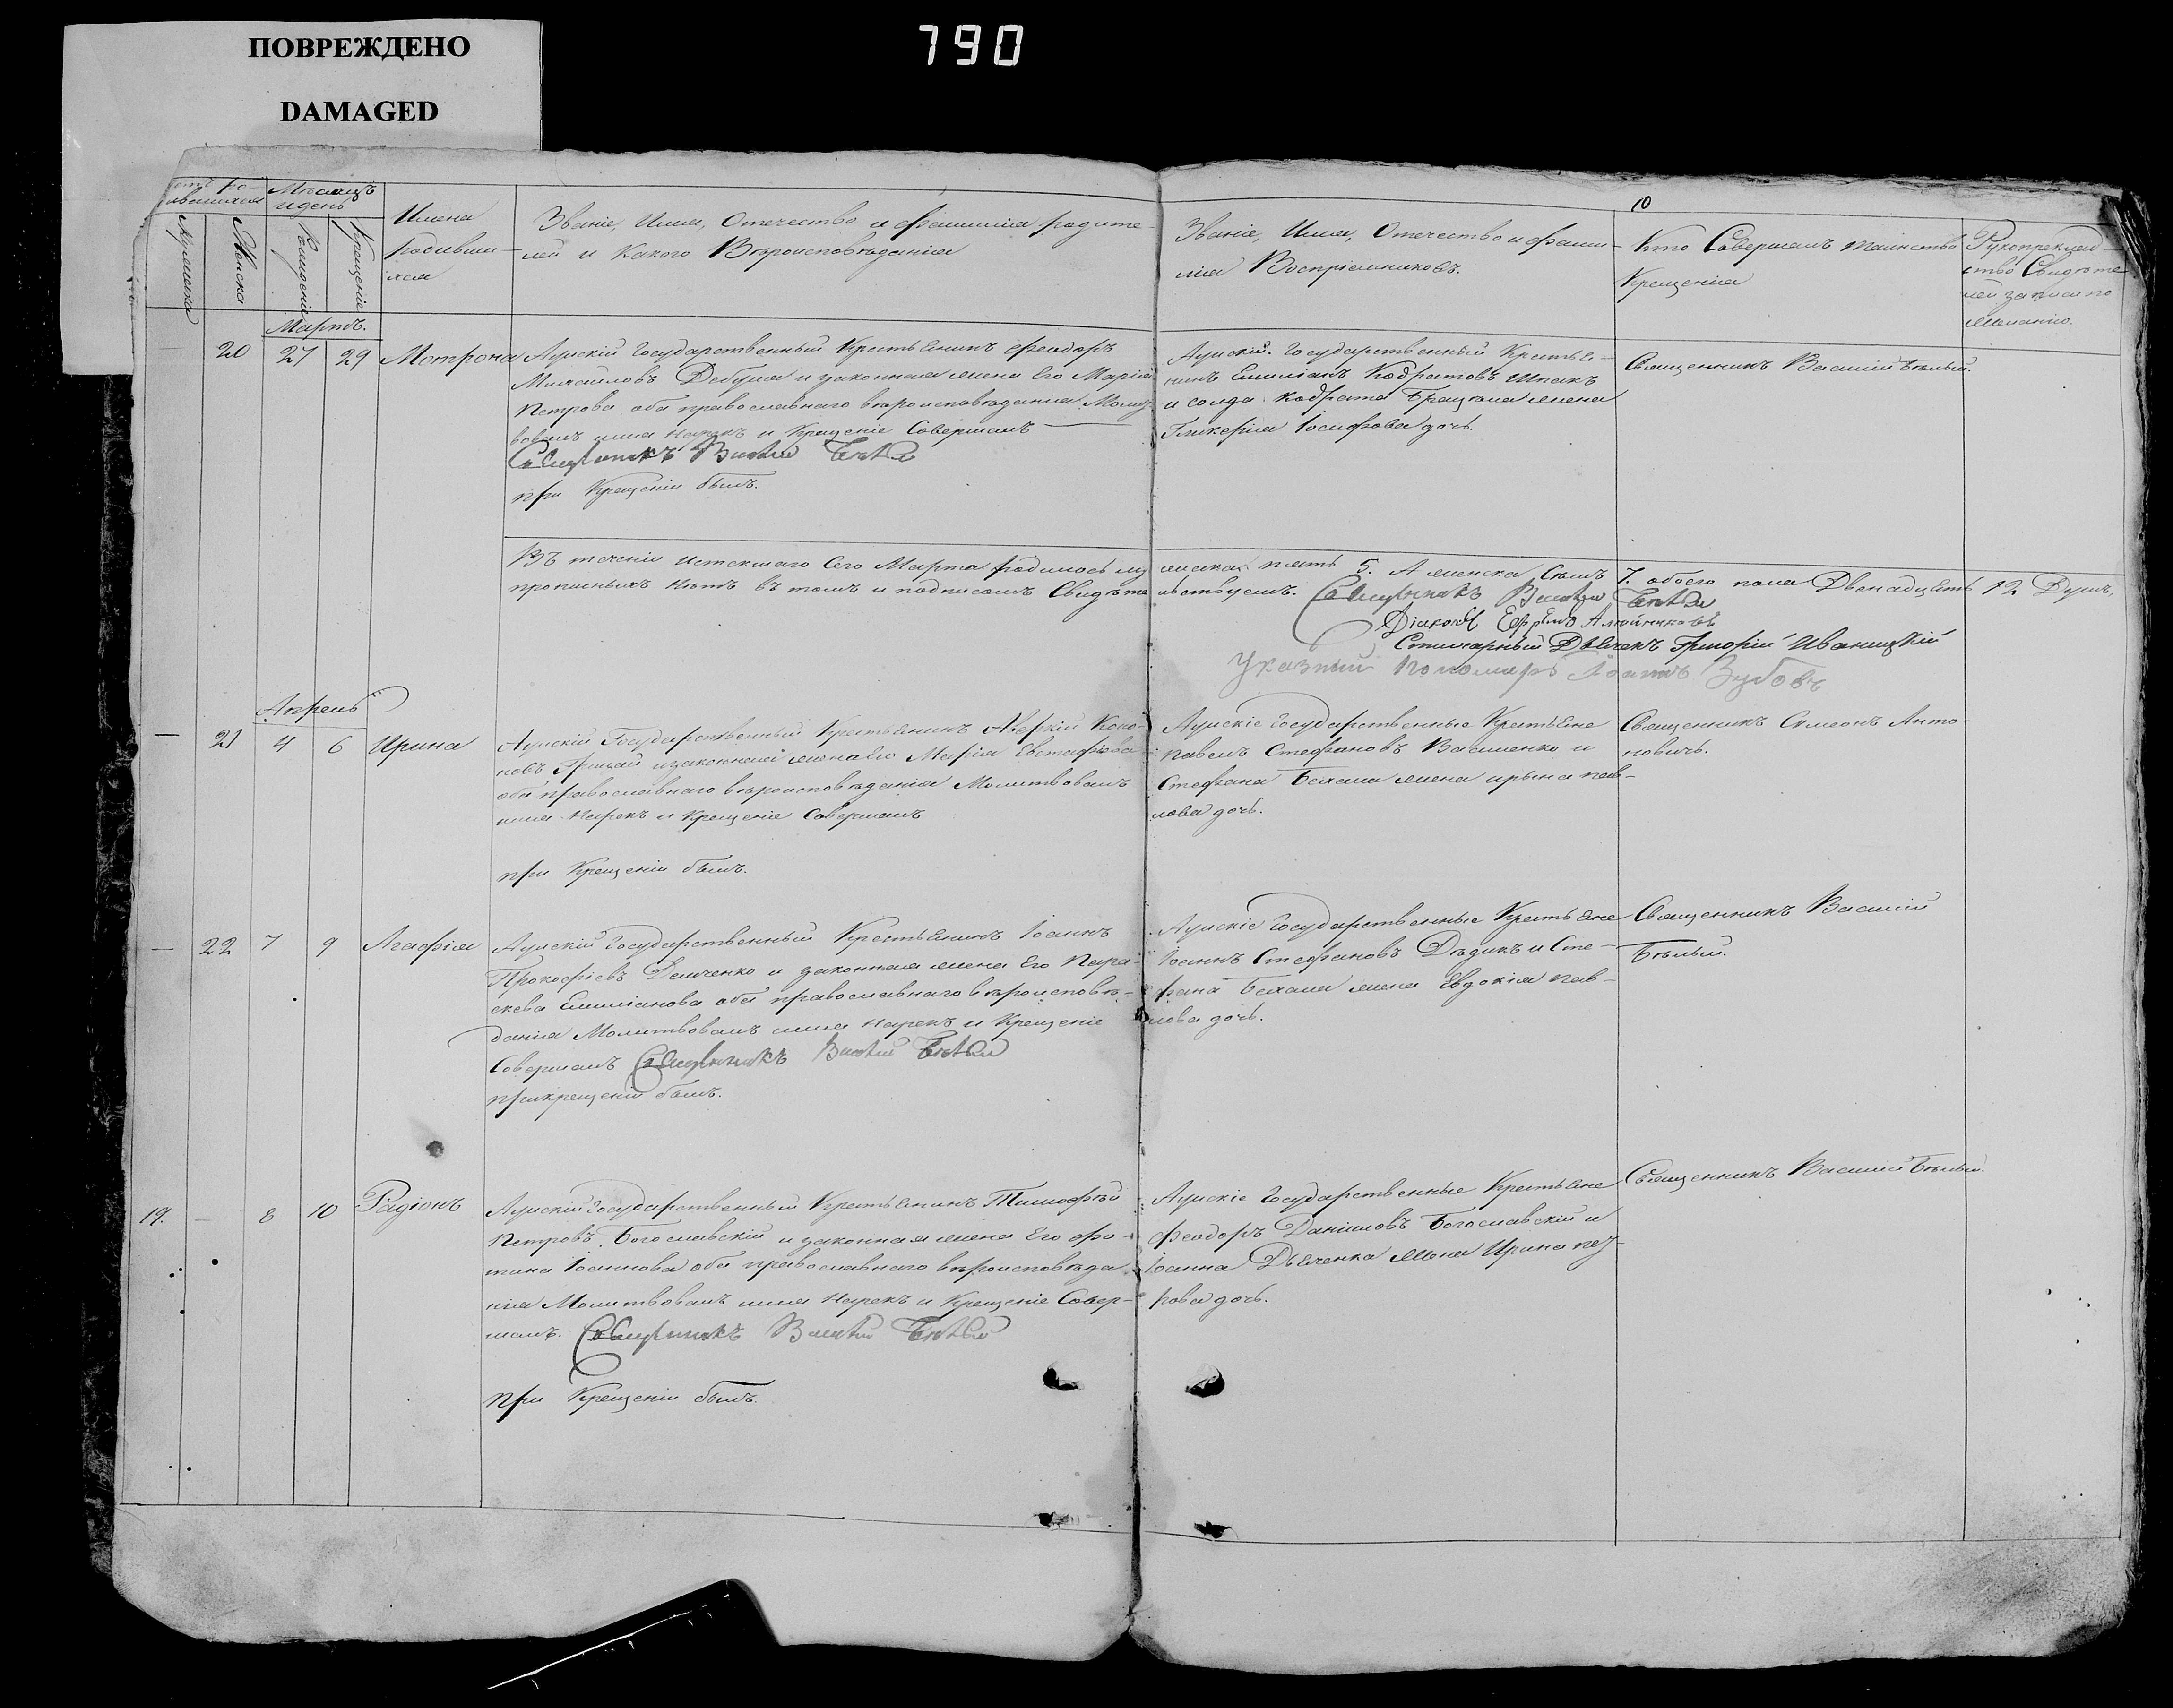 ПОВРЕЖДЕНО
DAMAGED
790
10
Мѣсяцъ
и день
Мужеска
Женска
Рожденія
Крещеніе
Имена
родивши-
ихся
Званіе, Имя, Отечество и фамилія родите-
лей и Какого Вѣроисповѣданія
Званіе, Имя, Отечество и фами-
лія Воспріемниковъ.
Кто Совершалъ таинство
Крещенія
Рукоприклад-
ство Свидѣте
лей записи по
желанію.
Мартъ.
— 20 27 29 Мотрона
Аумскій Государственный Крестьянинъ Феодоръ
Михайловъ Дебуша и законная жена Его Марія
Петрова оба православнаго вѣроисповѣданія Молит
вовалъ имя Нарекъ и Крещеніе Совершалъ
Священникъ Василій Бѣлый
при Крещеніи былъ.
Аумскій Государственный Крестья-
нинъ Емиліанъ Кодратовъ Шпакъ
и солда Кодрата жена
Гликерія Іосифова дочь.
Священникъ Василій Бѣлый.
Въ теченіи истекшаго Сего Марта родилось му жеска пять 5. А женска Семъ 7. обоего пола Двенадцять 12 Душъ,
прописныхъ Нѣтъ въ томъ и подписомъ Свидѣте льствуемъ. Священникъ Василій Бѣлый
Діаконъ Ефремъ
Стихарный Дьячекъ Григорій Иваницкій
Указный Пономарь Іоаннъ Зубовъ
Апрель
— 21 4 6 Ирина
Аумскій Государственный Крестьянинъ Аверкій Коно-
новъ Грицай и законная жена Его Марія Евстафіева
оба православнаго вѣроисповѣданія Молитвовалъ
имя Нарекъ и Крещеніе Совершалъ
при Крещеніи былъ.
Аумскіе Государственные Крестьяне
Павелъ Стефановъ Василенко и
Стефана Бехала жена ирына пав-
лова дочь.
Священникъ Симеонъ Анто-
новичь.
— 22 7 9 Агафія
Аумскій Государственный Крестьянинъ Іоаннъ
Прокофіевъ Демченко и законная жена Его Пара-
скева Емиліанова оба православнаго вѣроисповѣ-
данія Молитвовалъ имя Нарекъ и Крещеніе
Совершалъ Священникъ Василій Бѣлый
при крещеніи былъ.
Аумскіе Государственные Крестьяне
Іоаннъ Стефановъ Дѣдикъ и Сте-
фана Бехала жена Евдокія пав-
лова дочь.
Священникъ Василій
Бѣлый.
19. — 8 10 Радіонъ
Аумскій Государственный Крестьянинъ Тимофѣй
Петровъ Богославскій и законная жена Его фо-
тина Іоаннова оба православнаго вѣроисповѣда
нія Молитвовалъ имя Нарекъ и Крещеніе Совер-
шалъ. Священникъ Василій Бѣлый
при Крещеніи былъ.
Аумскіе Государственные Крестьяне
Феодоръ Даніиловъ Богославскій и
Іоанна Дьяченка жена Ирина
рова дочь.
Священникъ Василій Бѣлый.